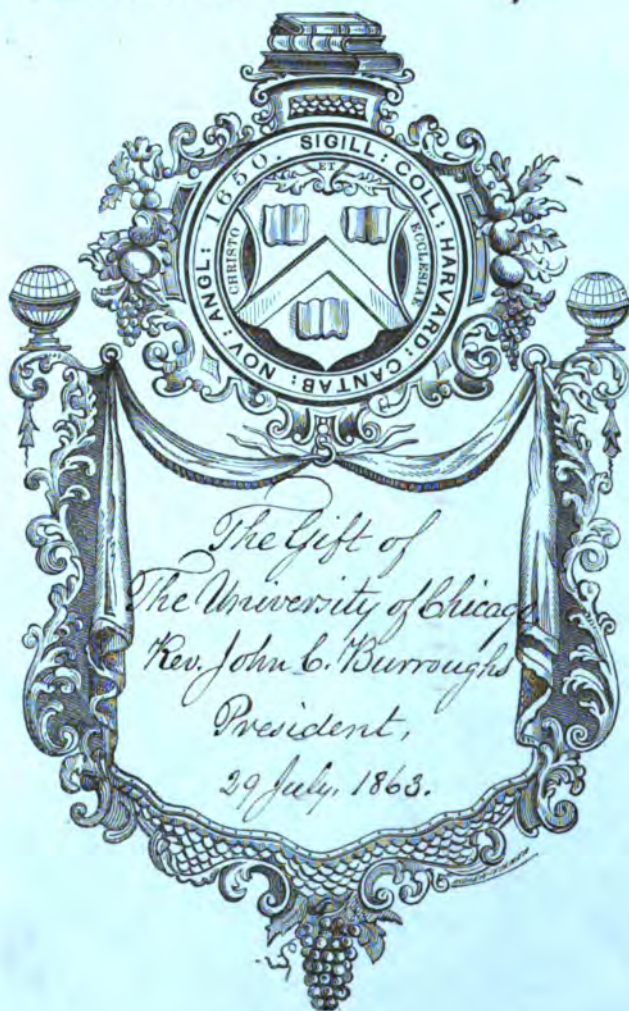 SIGILL: COLL: HARVARD: CANTAB: NOV: ANGL: 1650.
CHRISTO ET ECCLESIAE
The Gift of
The University of Chicago
Rev. John C. Burroughs
President,
29 July. 1863.